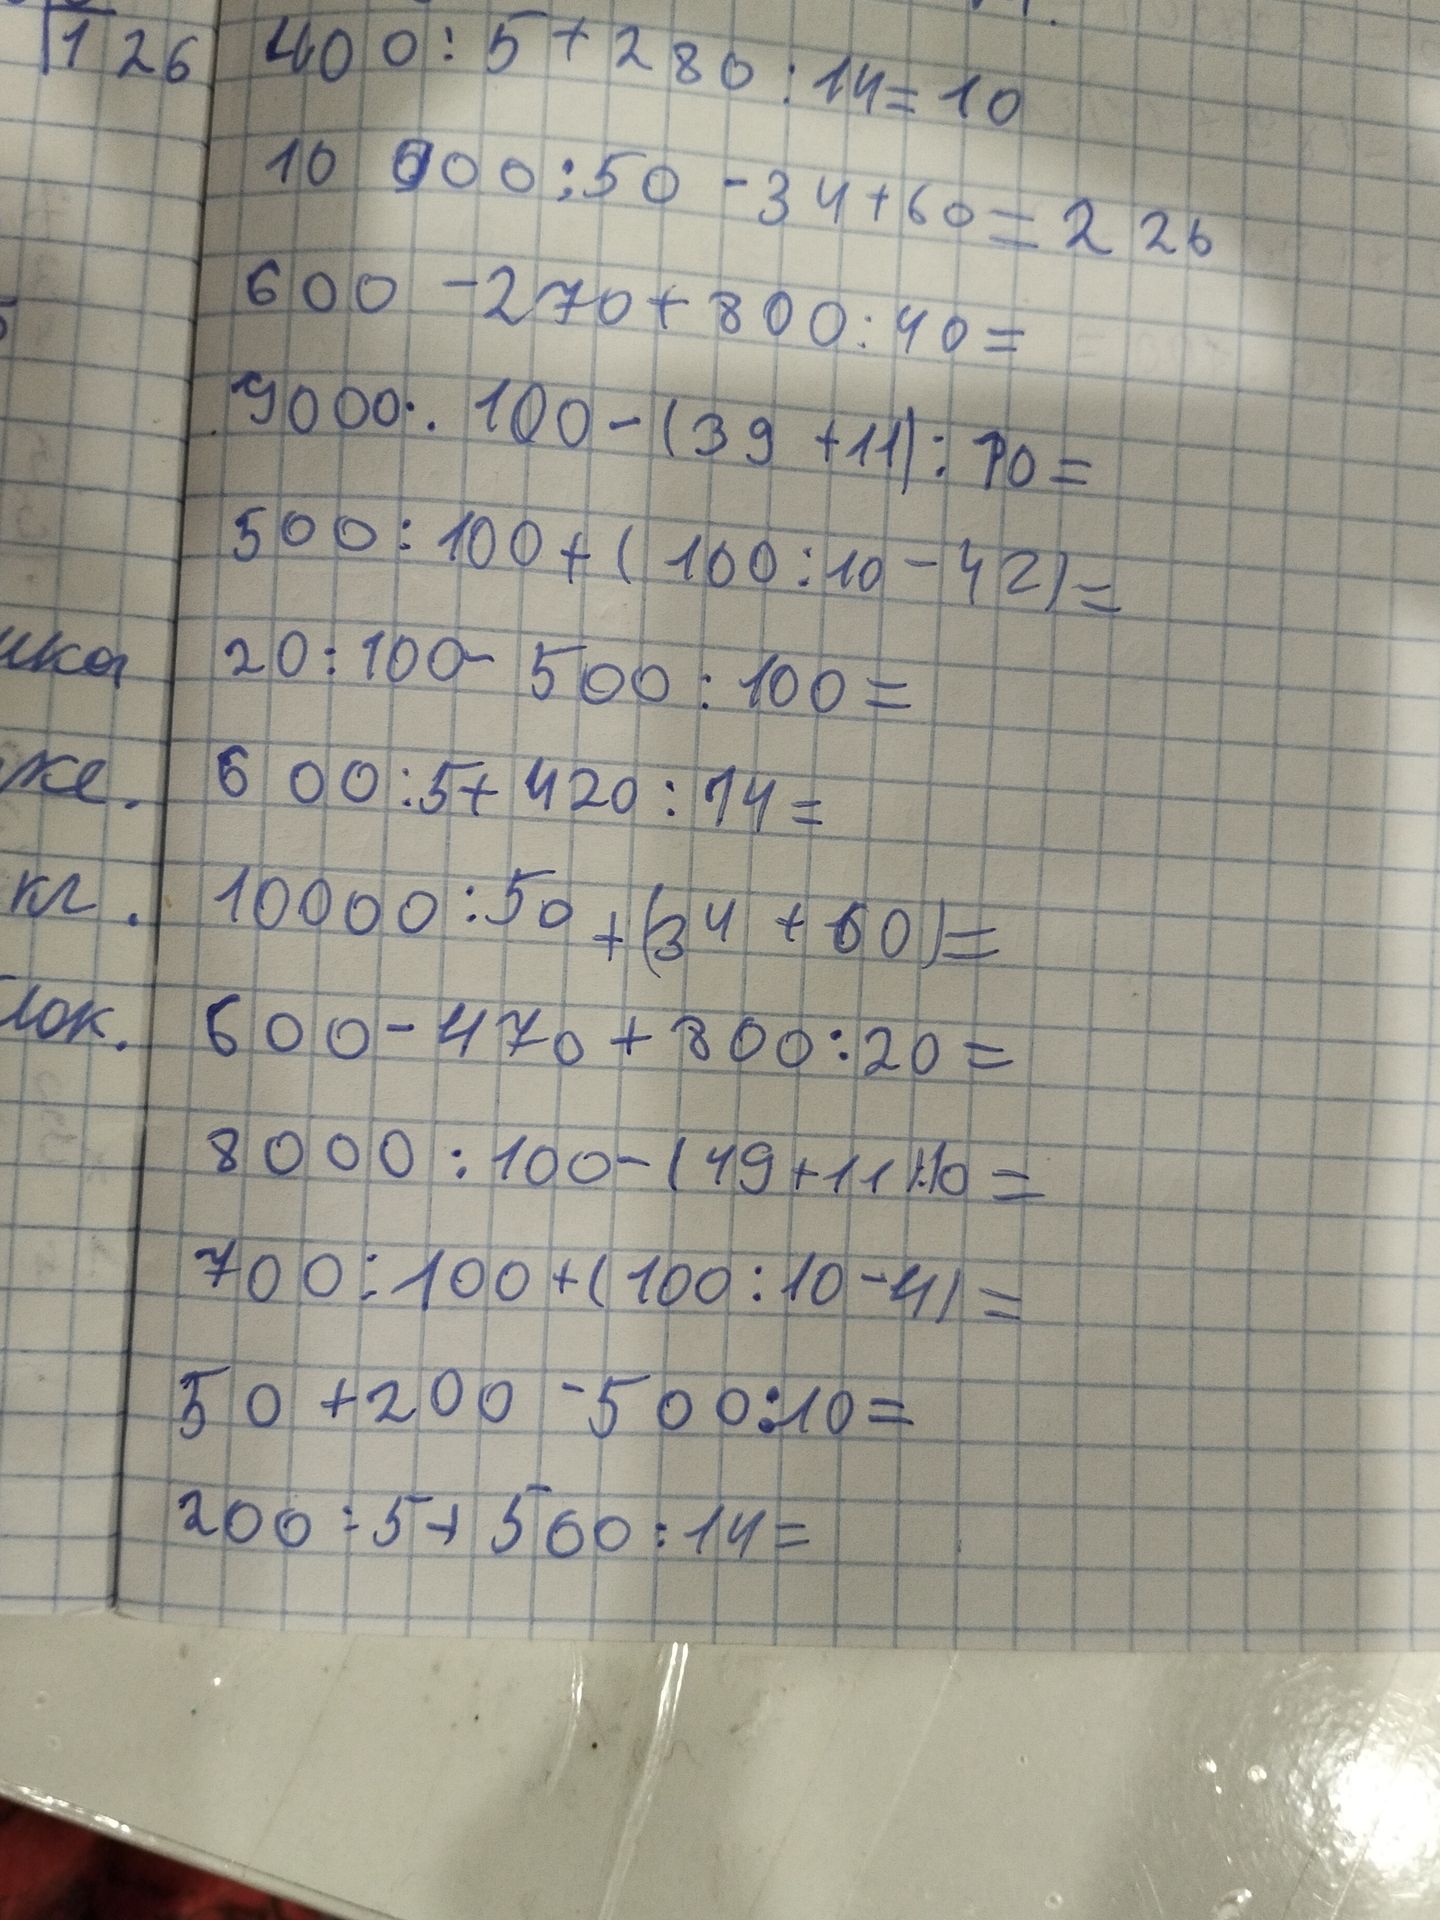 126
ика
же.
кг.
лок.
400:5+280:14=10
10 000:50-34+60=226
600-270+800:40=
9000:100-(39+11):10=
500:100+(100:10-42)=
20:100-500:100=
600:5+420:14=
10000:50+(34+60)=
600-470+800:20=
8000:100-(49+11):10=
700:100+(100:10-4)=
50+200-500:10=
200:5+560:14=